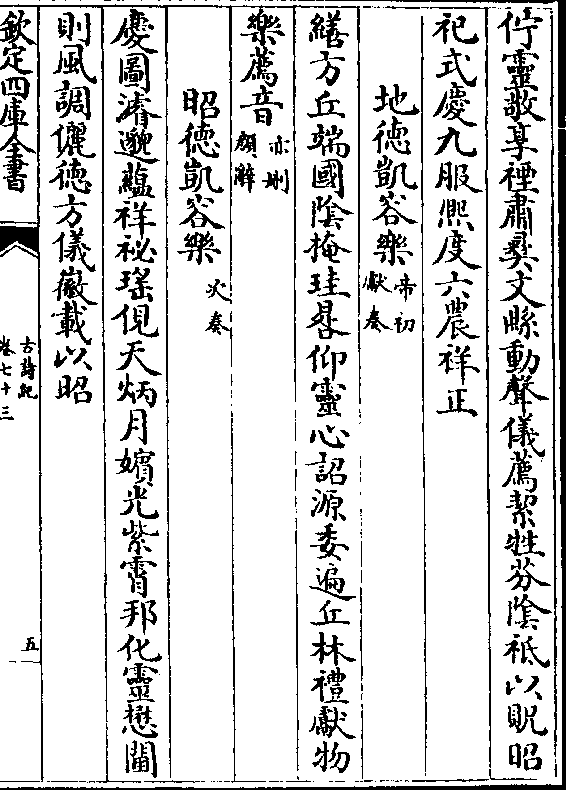 佇靈敬享禋肅彞文縣動聲儀薦潔牲芬陰祗以貺昭
祀式慶九服熙度六農祥正
地德凱容樂帝初獻奏
繕方丘端國陰掩珪晷仰靈心詔源委遍丘林禮獻物
樂薦音亦删顔辭
昭德凱容樂次奏
慶圖濬邈蘊祥祕瑤俔天炳月嬪光紫霄邦化靈懋閫
則風調儷德方儀徽載以昭
欽定四庫全書
古詩紀
卷七十三
五